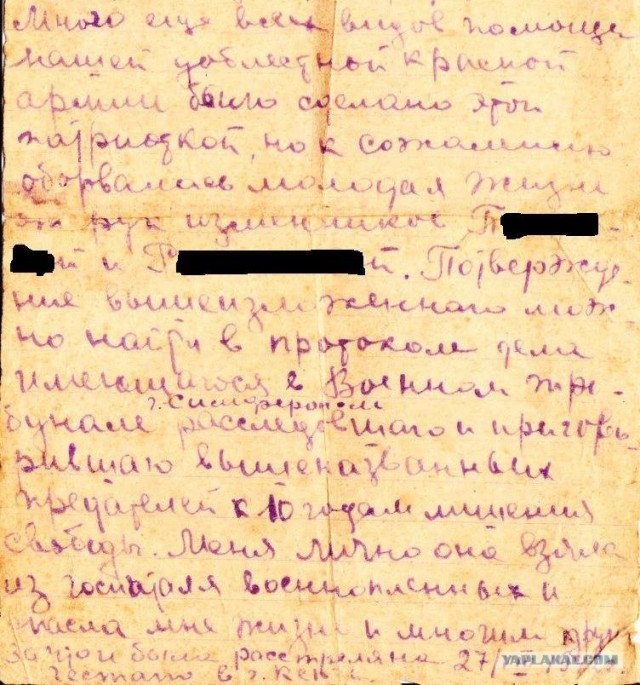 Много еще всех видов помощи
нашей доблестной красной
армии было сделано этой
патриоткой, но к сожалению
оборвалась молодая жизнь
от рук изменников П -
ой и Р й. Потвержде
ние вышеизложенного мож
но найти в протоколе дела
имеющагося в Военном три-
г. Симферополя
бунале расследовшаго и пригово-
рившаго вышеназванных
предателей к 10 годам лишения
свободы. Меня лично она взяла
из госпиталя военнопленных и
спасла мне жизнь и многим други
за что и была расстреляна 27/
гестапо в г.
YAPLAKAL.COM